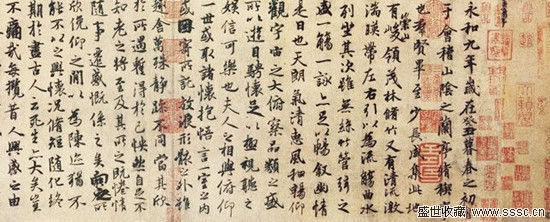 永和九年歲在癸丑暮春之初
于會稽山陰之蘭亭脩稧
也群賢畢至少長咸集此地
有崇山峻領茂林脩竹又有清流激
湍暎帶左右引以為流觴曲水
列坐其次雖無絲竹管弦之
盛一觴一詠亦足以暢敘幽情
是日也天朗氣清惠風和暢仰
觀宇宙之大俯察品類之盛
所以遊目騁懷足以極視聽之
娛信可樂也夫人之相與俯仰
一世或取諸懷抱悟言一室之內
或因寄所託放浪形骸之外雖
趣舍萬殊靜躁不同當其欣
於所遇蹔得於己怏然自足不
知老之將至及其所之既惓情
隨事遷感慨係之矣向之
欣俛仰之閒以為陳迹猶不
能不以之興懷況脩短隨化終
期於盡古人云死生亦大矣豈
不痛哉每攬昔人興感之由
盛世收藏@www.sssc.cn